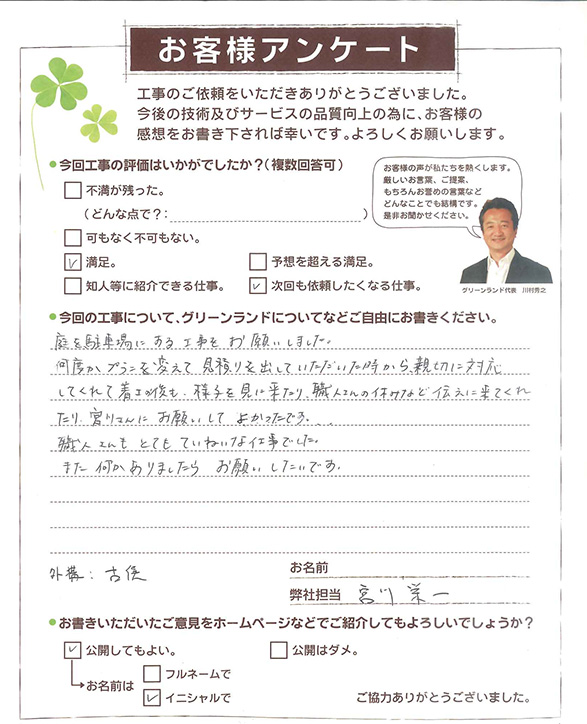 お客様アンケート
工事のご依頼をいただきありがとうございました。
今後の技術及びサービスの品質向上の為に、お客様の
感想をお書き下されば幸いです。よろしくお願いします。
●今回工事の評価はいかがでしたか?(複数回答可)
お客様の声が私たちを熱くします。
厳しいお言葉、ご提案、
もちろんお誉めの言葉など
どんなことでも結構です。
是非お聞かせください。
不満が残った。
(どんな点で?: )
可もなく不可もない。
満足。 予想を超える満足。
知人等に紹介できる仕事。 次回も依頼したくなる仕事。
グリーンランド代表 川村秀之
●今回の工事について、グリーンランドについてなどご自由にお書きください。
庭を駐車場にする工事をお願いしました。
何度かプランを変えて見積りを出していただいた時から、親切に対応
してくれて着工の後も、様子を見に来たり、職人さんの休みなど伝えに来てくれ
たり、宮川さんにお願いしてよかったです。
職人さんもとてもていねいな仕事でした。
また何かありましたらお願いしたいです。
外構:
お名前
弊社担当 宮川 栄一
●お書きいただいたご意見をホームページなどでご紹介してもよろしいでしょうか?
公開してもよい。 公開はダメ。
お名前は フルネームで
イニシャルで
ご協力ありがとうございました。